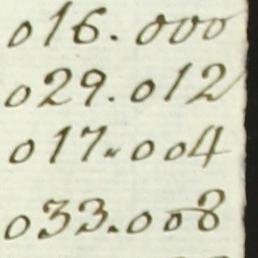 016.000
029.012
017.004
033.008